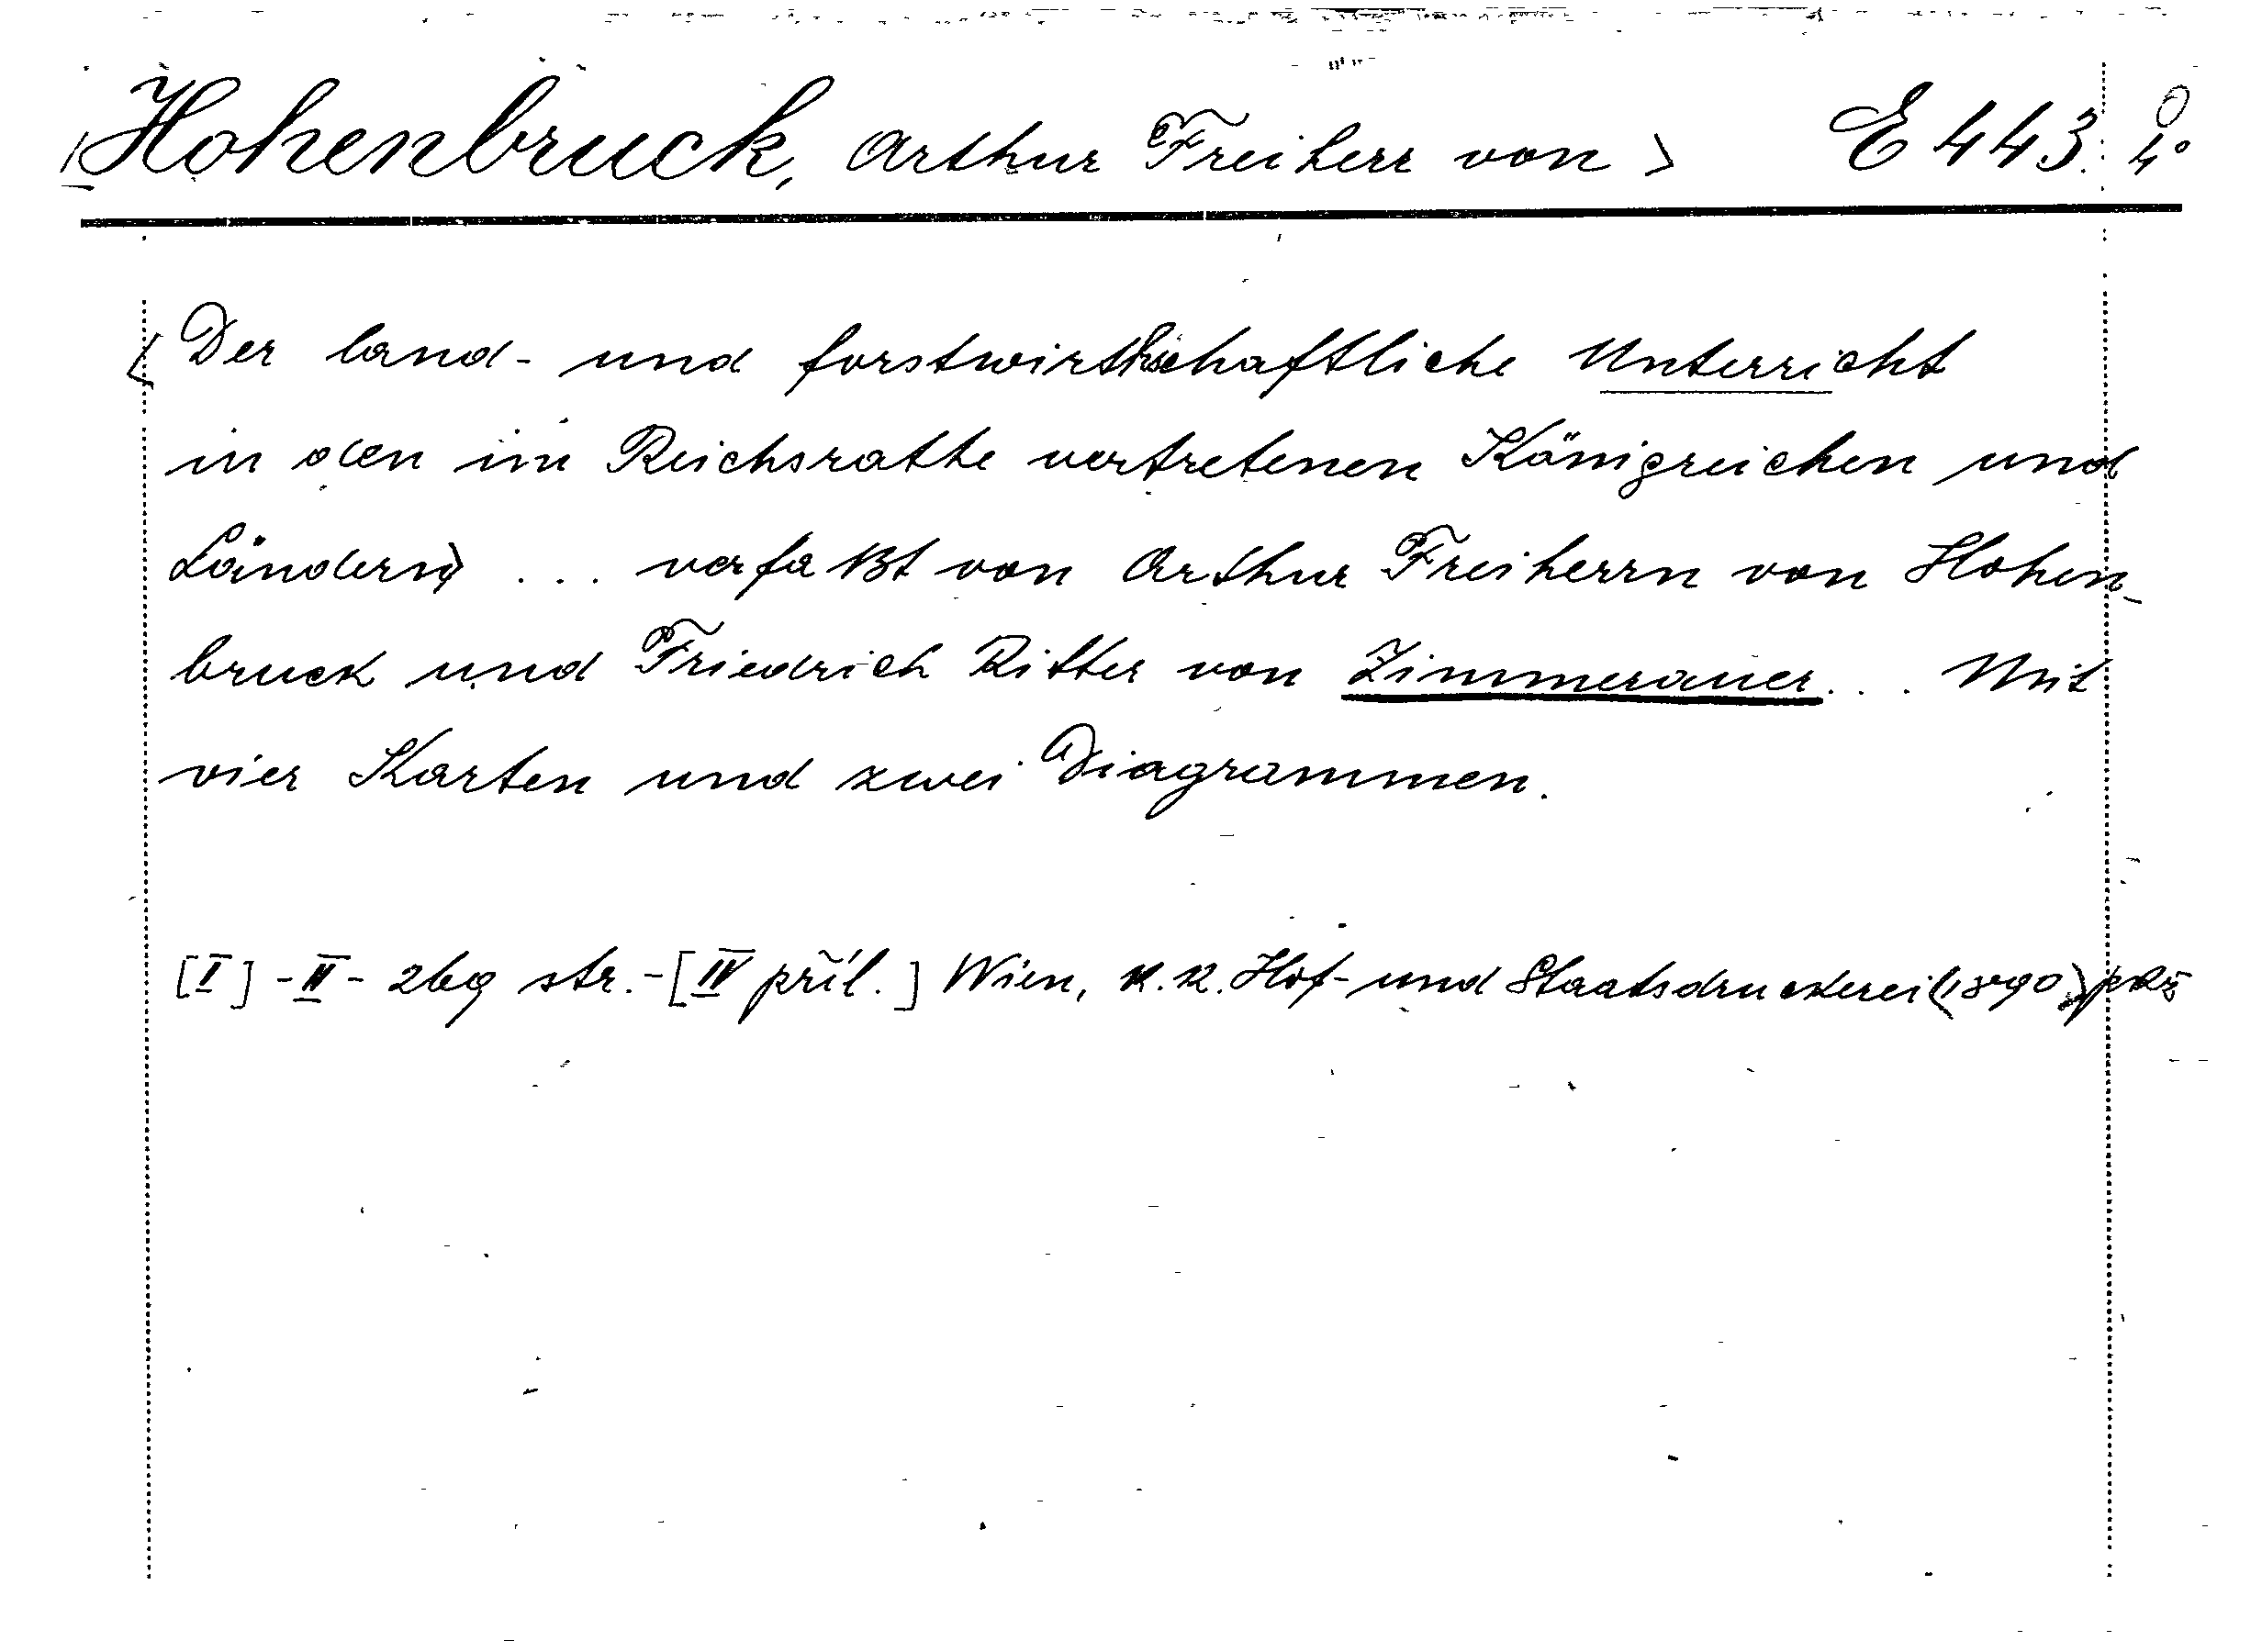 Hohenbruck, Arthur Freiherr von > E 443. 4°
Der land- und forstwirthschaftliche Unterricht
in den im Reichsrathe vertretenen Königreichen und
Ländern ... verfaßt von Arthur Freiherrn von Hohen-
bruck und Friedrich Ritter von Zimmerauer... Mit
vier Karten und zwei Diagrammen.
[I] - II - 269 str. - [IV příl.] Wien, k. k. Hof- und Staatsdruckerei (1890)